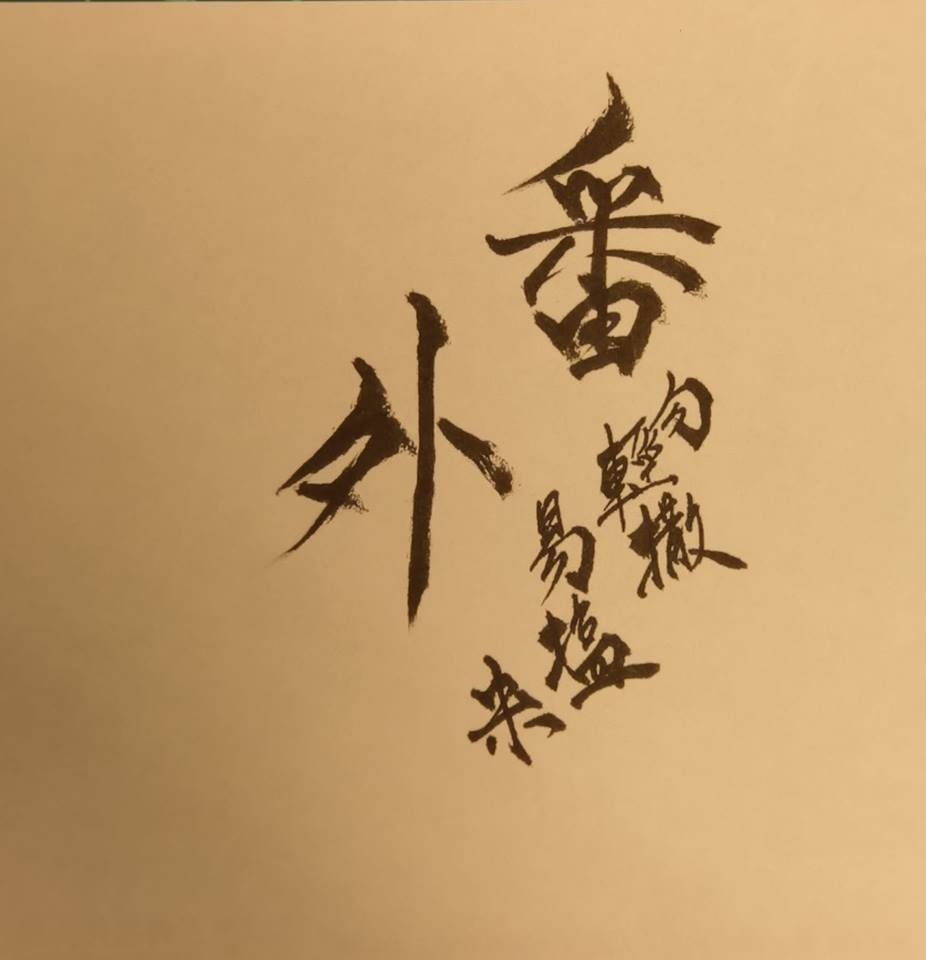 番外
勿輕易
撒塩来